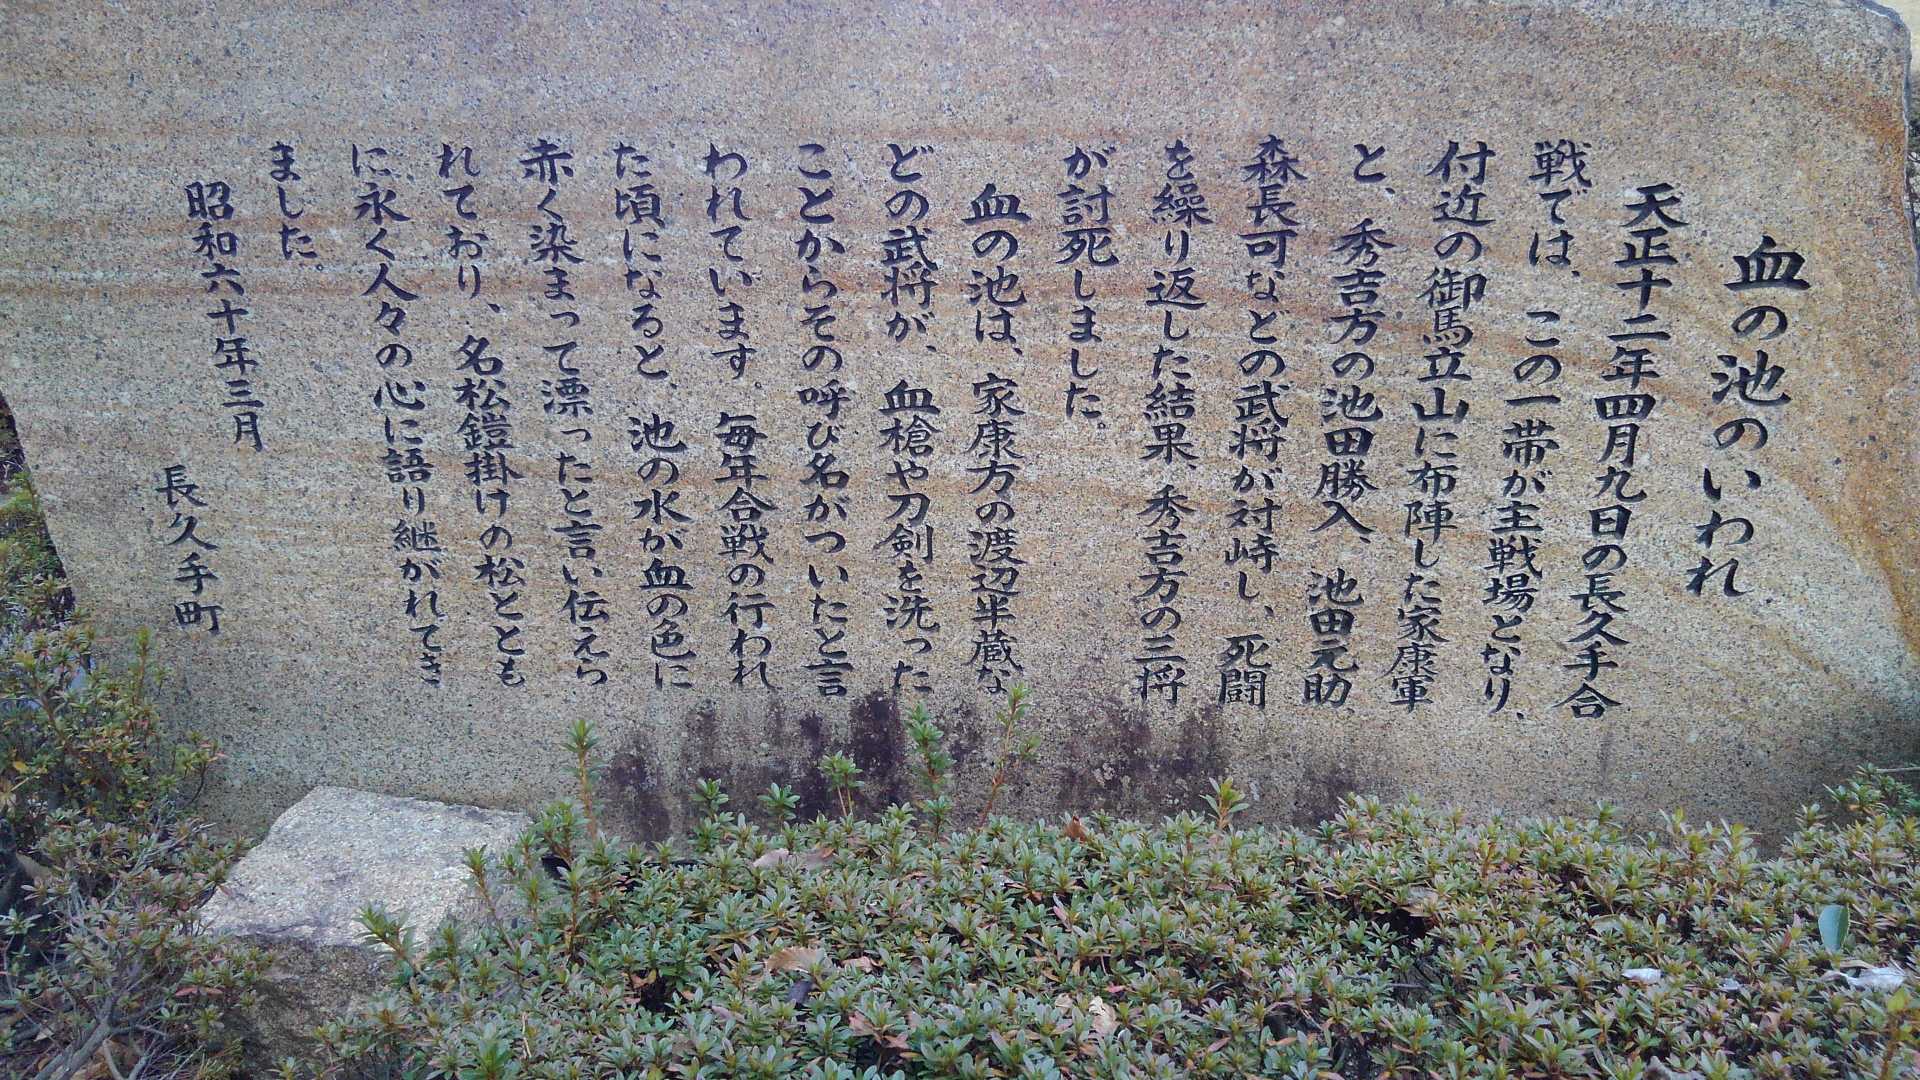 血の池のいわれ
天正十二年四月九日の長久手合
戦では、この一帯が主戦場となり、
付近の御馬立山に布陣した家康軍
と、秀吉方の池田勝入、池田元助
森長可などの武将が対峙し、死闘
を繰り返した結果、秀吉方の三将
が討死しました。
血の池は、家康方の渡辺半蔵な
どの武将が、血槍や刀剣を洗った
ことからその呼び名がついたと言
われています。毎年合戦の行われ
た頃になると、池の水が血の色に
赤く染まって漂ったと言い伝えら
れており、名松鎧掛けの松ととも
に永く人々の心に語り継がれてき
ました。
昭和六十年三月
長久手町